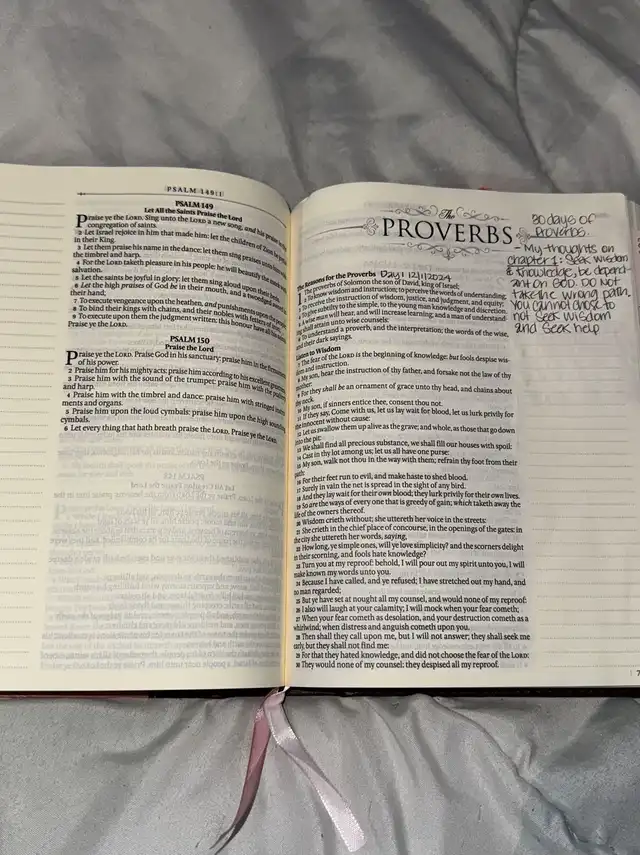 PSALM 149:1
PSALM 149
Let All the Saints Praise the Lord
Praise ye the LORD. Sing unto the LORD a new song, and his praise in the
congregation of saints.
2 Let Israel rejoice in him that made him: let the children of Zion be joyful
in their King.
3 Let them praise his name in the dance: let them sing praises unto him with
the timbrel and harp.
4 For the LORD taketh pleasure in his people: he will beautify the meek with
salvation.
5 Let the saints be joyful in glory: let them sing aloud upon their beds.
6 Let the high praises of God be in their mouth, and a twoedged sword in
their hand;
7 To execute vengeance upon the heathen, and punishments upon the people;
8 To bind their kings with chains, and their nobles with fetters of iron;
9 To execute upon them the judgment written: this honour have all his saints.
Praise ye the LORD.
PSALM 150
Praise the Lord
Praise ye the LORD. Praise God in his sanctuary: praise him in the firmament
of his power.
2 Praise him for his mighty acts: praise him according to his excellent greatness.
3 Praise him with the sound of the trumpet: praise him with the psaltery
and harp.
4 Praise him with the timbrel and dance: praise him with stringed instruments
ments and organs.
5 Praise him upon the loud cymbals: praise him upon the high sounding
cymbals.
6 Let every thing that hath breath praise the LORD. Praise ye the LORD.
The
PROVERBS
The Reasons for the Proverbs Day 1 12/1/2024
1 The proverbs of Solomon the son of David, king of Israel;
2 To know wisdom and instruction; to perceive the words of understanding;
3 To receive the instruction of wisdom, justice, and judgment, and equity;
4 To give subtilty to the simple, to the young man knowledge and discretion.
5 A wise man will hear, and will increase learning; and a man of understanding
shall attain unto wise counsels:
6 To understand a proverb, and the interpretation; the words of the wise,
and their dark sayings.
Listen to Wisdom
7 The fear of the LORD is the beginning of knowledge: but fools despise wis-
dom and instruction.
8 My son, hear the instruction of thy father, and forsake not the law of thy
mother:
9 For they shall be an ornament of grace unto thy head, and chains about
thy neck.
10 My son, if sinners entice thee, consent thou not.
11 If they say, Come with us, let us lay wait for blood, let us lurk privily for
the innocent without cause:
12 Let us swallow them up alive as the grave; and whole, as those that go down
into the pit:
13 We shall find all precious substance, we shall fill our houses with spoil:
14 Cast in thy lot among us; let us all have one purse:
15 My son, walk not thou in the way with them; refrain thy foot from their
path:
16 For their feet run to evil, and make haste to shed blood.
17 Surely in vain the net is spread in the sight of any bird.
18 And they lay wait for their own blood; they lurk privily for their own lives.
19 So are the ways of every one that is greedy of gain; which taketh away the
life of the owners thereof.
20 Wisdom crieth without; she uttereth her voice in the streets:
21 She crieth in the chief place of concourse, in the openings of the gates: in
the city she uttereth her words, saying,
22 How long, ye simple ones, will ye love simplicity? and the scorners delight
in their scorning, and fools hate knowledge?
23 Turn you at my reproof: behold, I will pour out my spirit unto you, I will
make known my words unto you.
24 Because I have called, and ye refused; I have stretched out my hand, and
no man regarded;
25 But ye have set at nought all my counsel, and would none of my reproof:
26 I also will laugh at your calamity; I will mock when your fear cometh;
27 When your fear cometh as desolation, and your destruction cometh as a
whirlwind; when distress and anguish cometh upon you.
28 Then shall they call upon me, but I will not answer; they shall seek me
early, but they shall not find me:
29 For that they hated knowledge, and did not choose the fear of the LORD:
30 They would none of my counsel: they despised all my reproof.
30 days of
Proverbs.
- My thoughts on
chapter 1: Seek wisdom
& knowledge, be depend-
ant on GOD. DO NOT
take the wrong path.
You cannot choose to
not seek wisdom
and seek help